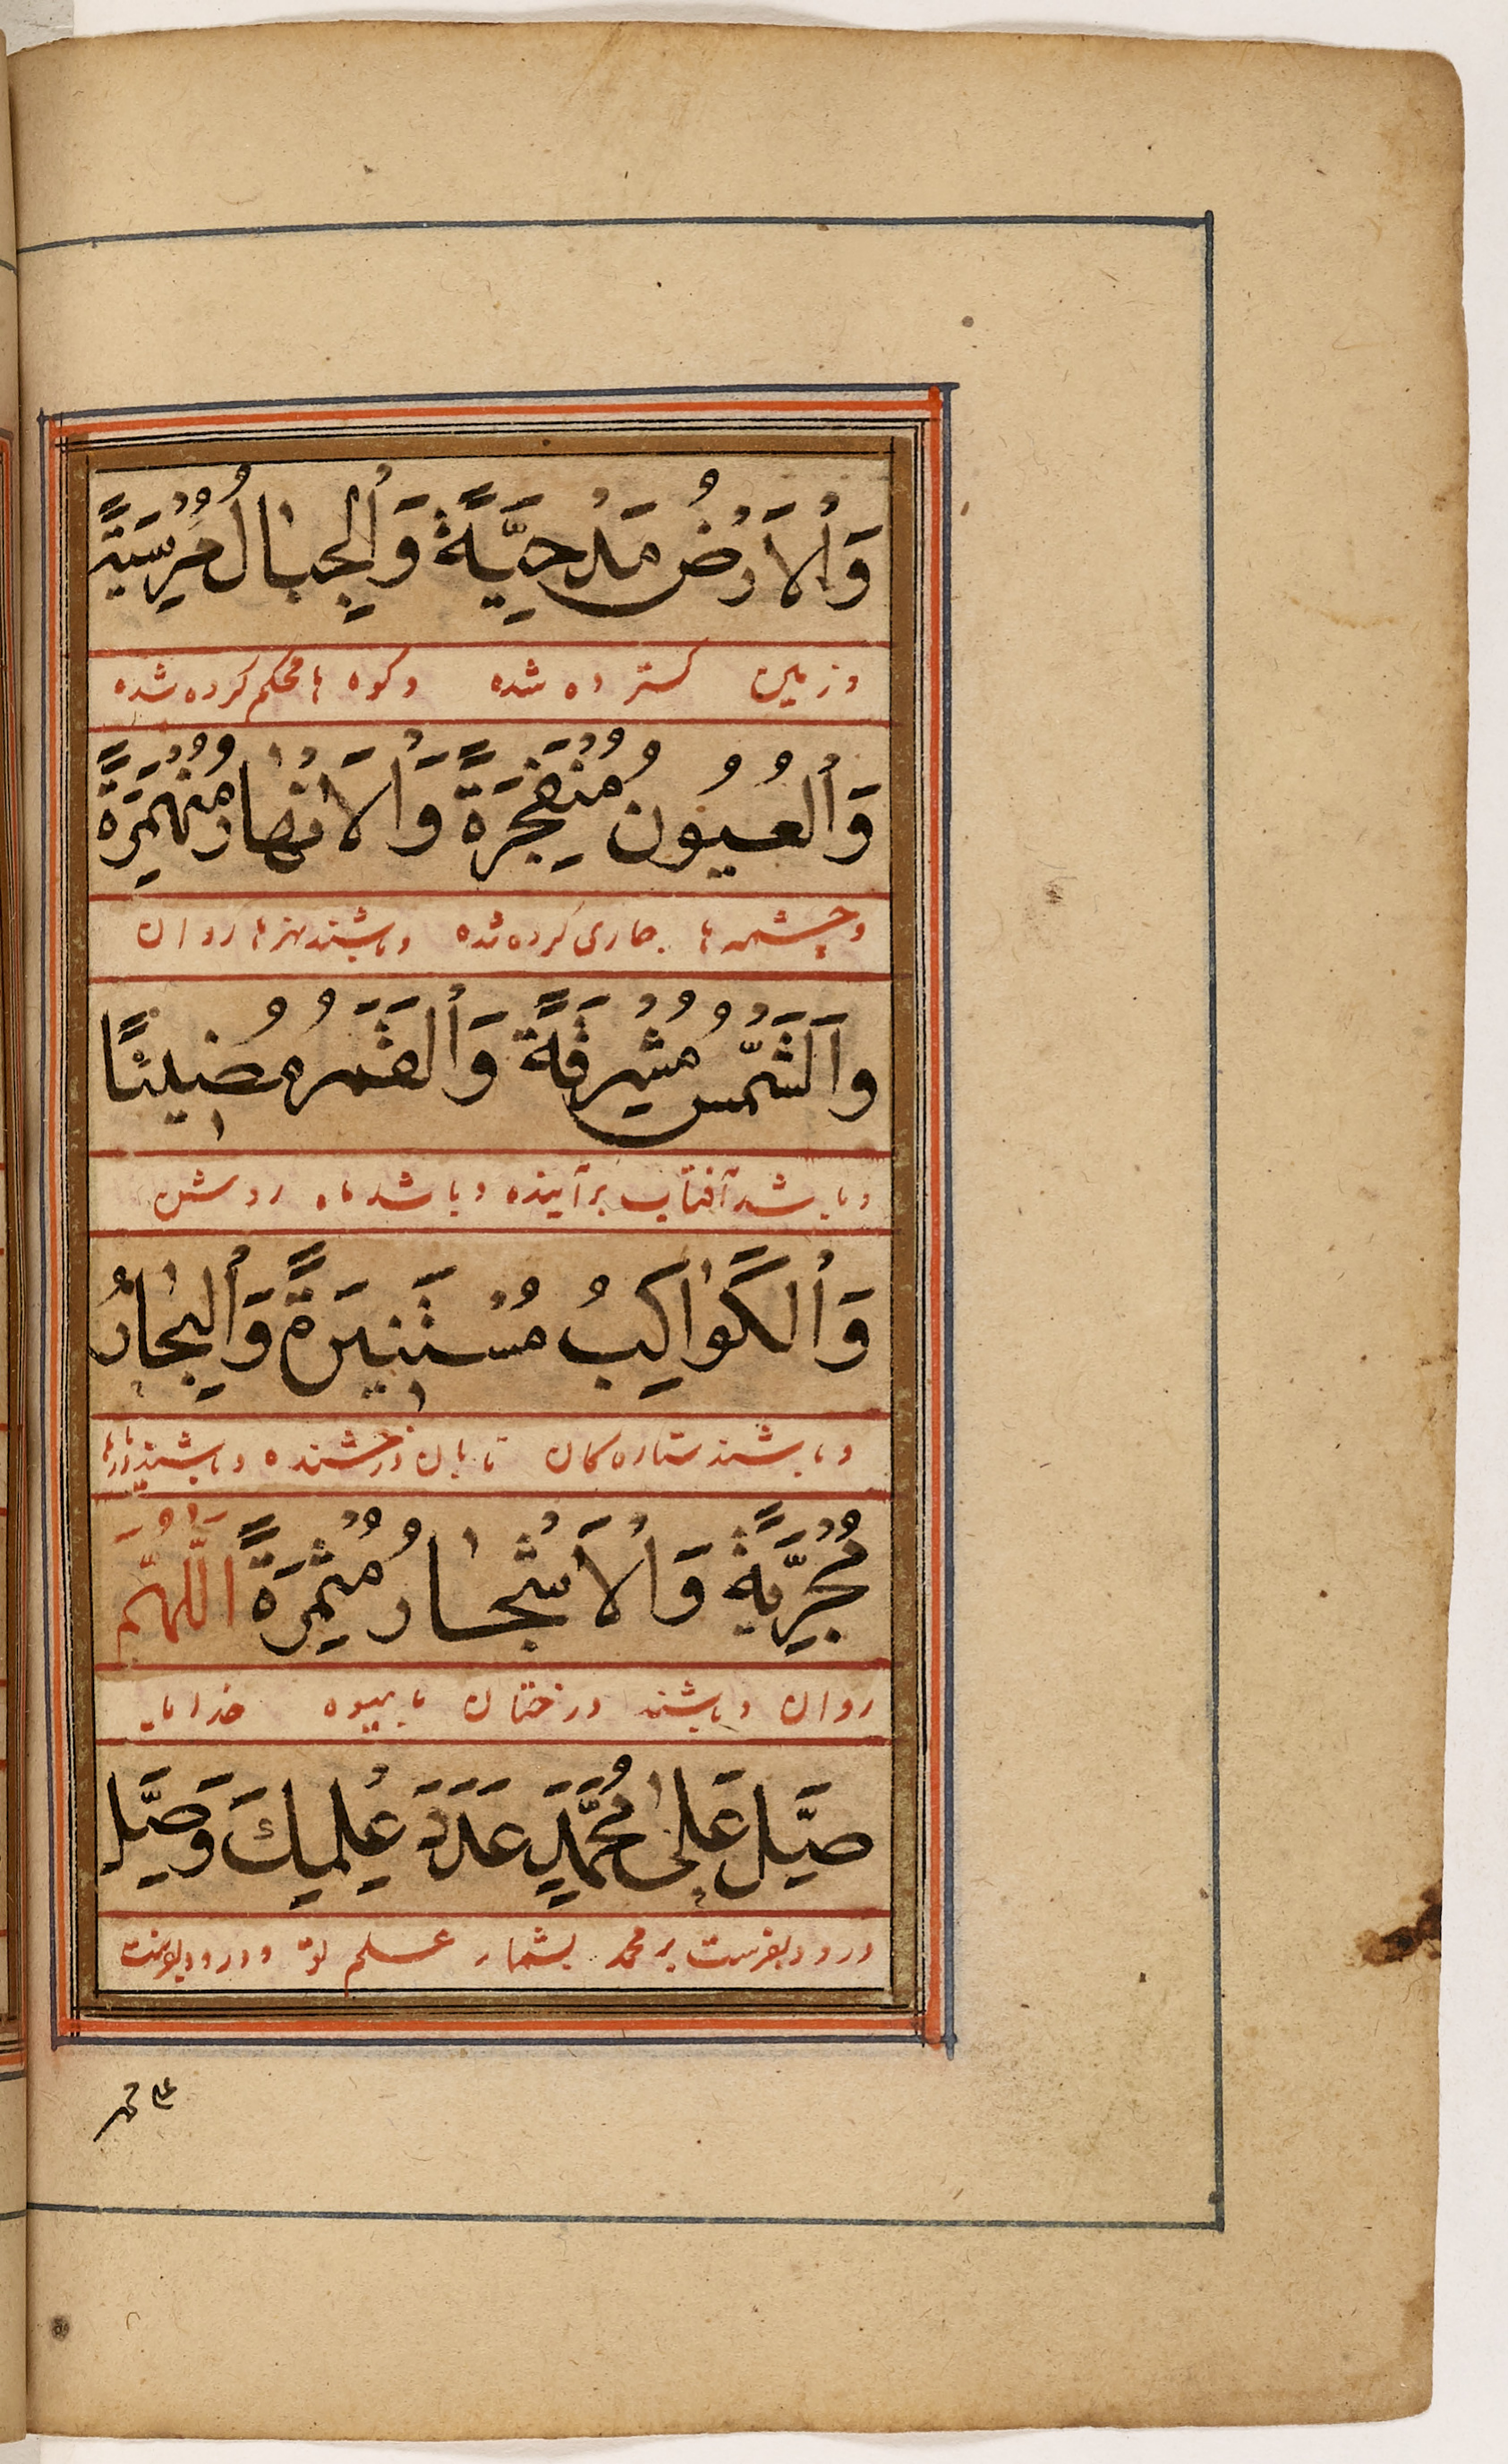 وَٱلْاَرْضُ مَدْحِيَّةً وَٱلْجِبَالُ مُرْسِيَةً
و زمین گسترده شده و کوه ها محکم کرده شده
وَٱلْعُيُونُ مُنْفَجِرَةً وَٱلْاَنْهَارُ مُنْهَمِرَةً
و چشمه ها جاری کرده شده و باشند نهرها روان
وَٱلشَّمْسُ مُشْرِقَةً وَٱلْقَمَرُ مُضِيئًا
و باشد آفتاب برآینده و باشد ماه روشن
وَٱلْكَوَاكِبُ مُسْتَنِيرَةً وَٱلْبِحَارُ
و باشند ستاره کان تابان درخشنده و باشند دریاها
مُجْرِيَّةً وَٱلْاَشْجَارُ مُثْمِرَةً اَللّٰهُمَّ
روان و باشند درختان با میوه خدایا
صَلِّ عَلٰى مُحَمَّدٍ عَدَدَ عِلْمِكَ وَصَلِّ
درود بفرست بر محمد بشمار علم تو و درود بفرست